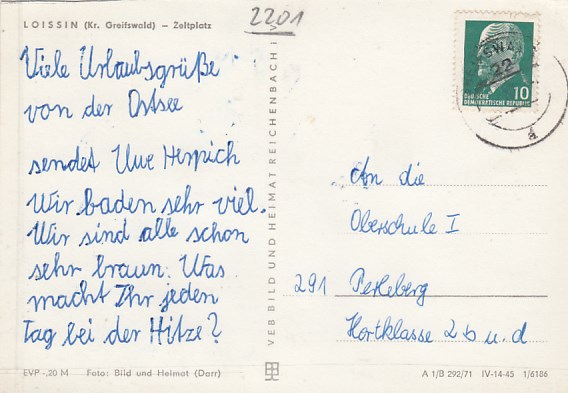 LOISSIN (Kr. Greifswald) – Zeltplatz
2201
Viele Urlaubsgrüße
von der Ostsee
sendet Uwe Herpich
Wir baden sehr viel.
Wir sind alle schon
sehr braun. Was
macht Ihr jeden
Tag bei der Hitze?
EVP -,20 M Foto: Bild und Heimat (Darr)
VEB BILD UND HEIMAT REICHENBACH i
10
DEUTSCHE
DEMOKRATISCHE REPUBLIK
22
a
An die
Oberschule I
291 Perleberg
Hortklasse 2b u. d
A 1/B 292/71 IV-14-45 1/6186